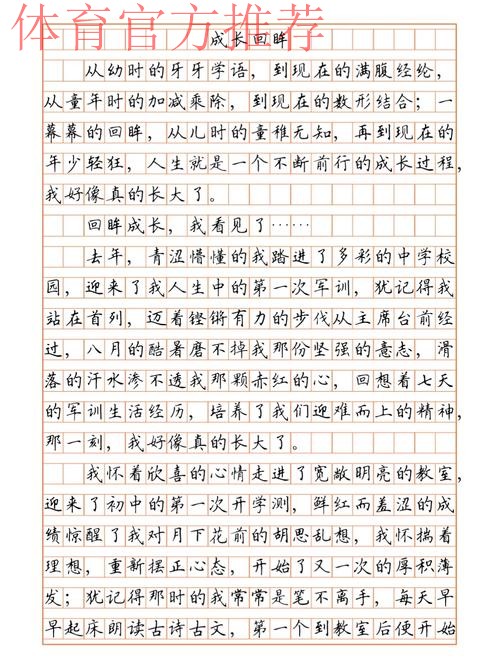 体育官方推荐
成长回眸
从幼时的牙牙学语，到现在的满腹经纶，
从童年时的加减乘除，到现在的数形结合；一
幕幕的回眸，从儿时的童稚无知，再到现在的
年少轻狂，人生就是一个不断前行的成长过程，
我好像真的长大了。
回眸成长，我看见了……
去年，青涩懵懂的我踏进了多彩的中学校
园，迎来了我人生中的第一次军训，犹记得我
站在首列，迈着铿锵有力的步伐从主席台前经
过，八月的酷暑磨不掉我那份坚强的意志，滑
落的汗水渗不透我那颗赤红的心，回想着七天
的军训生活经历，培养了我们迎难而上的精神，
那一刻，我好像真的长大了。
我怀着欣喜的心情走进了宽敞明亮的教室，
迎来了初中的第一次开学测，鲜红而羞涩的成
绩惊醒了我对月下花前的胡思乱想，我怀揣着
理想，重新摆正心态，开始了又一次的厚积薄
发；犹记得那时的我常常是笔不离手，每天早
早起床朗读古诗古文，第一个到教室后便开始